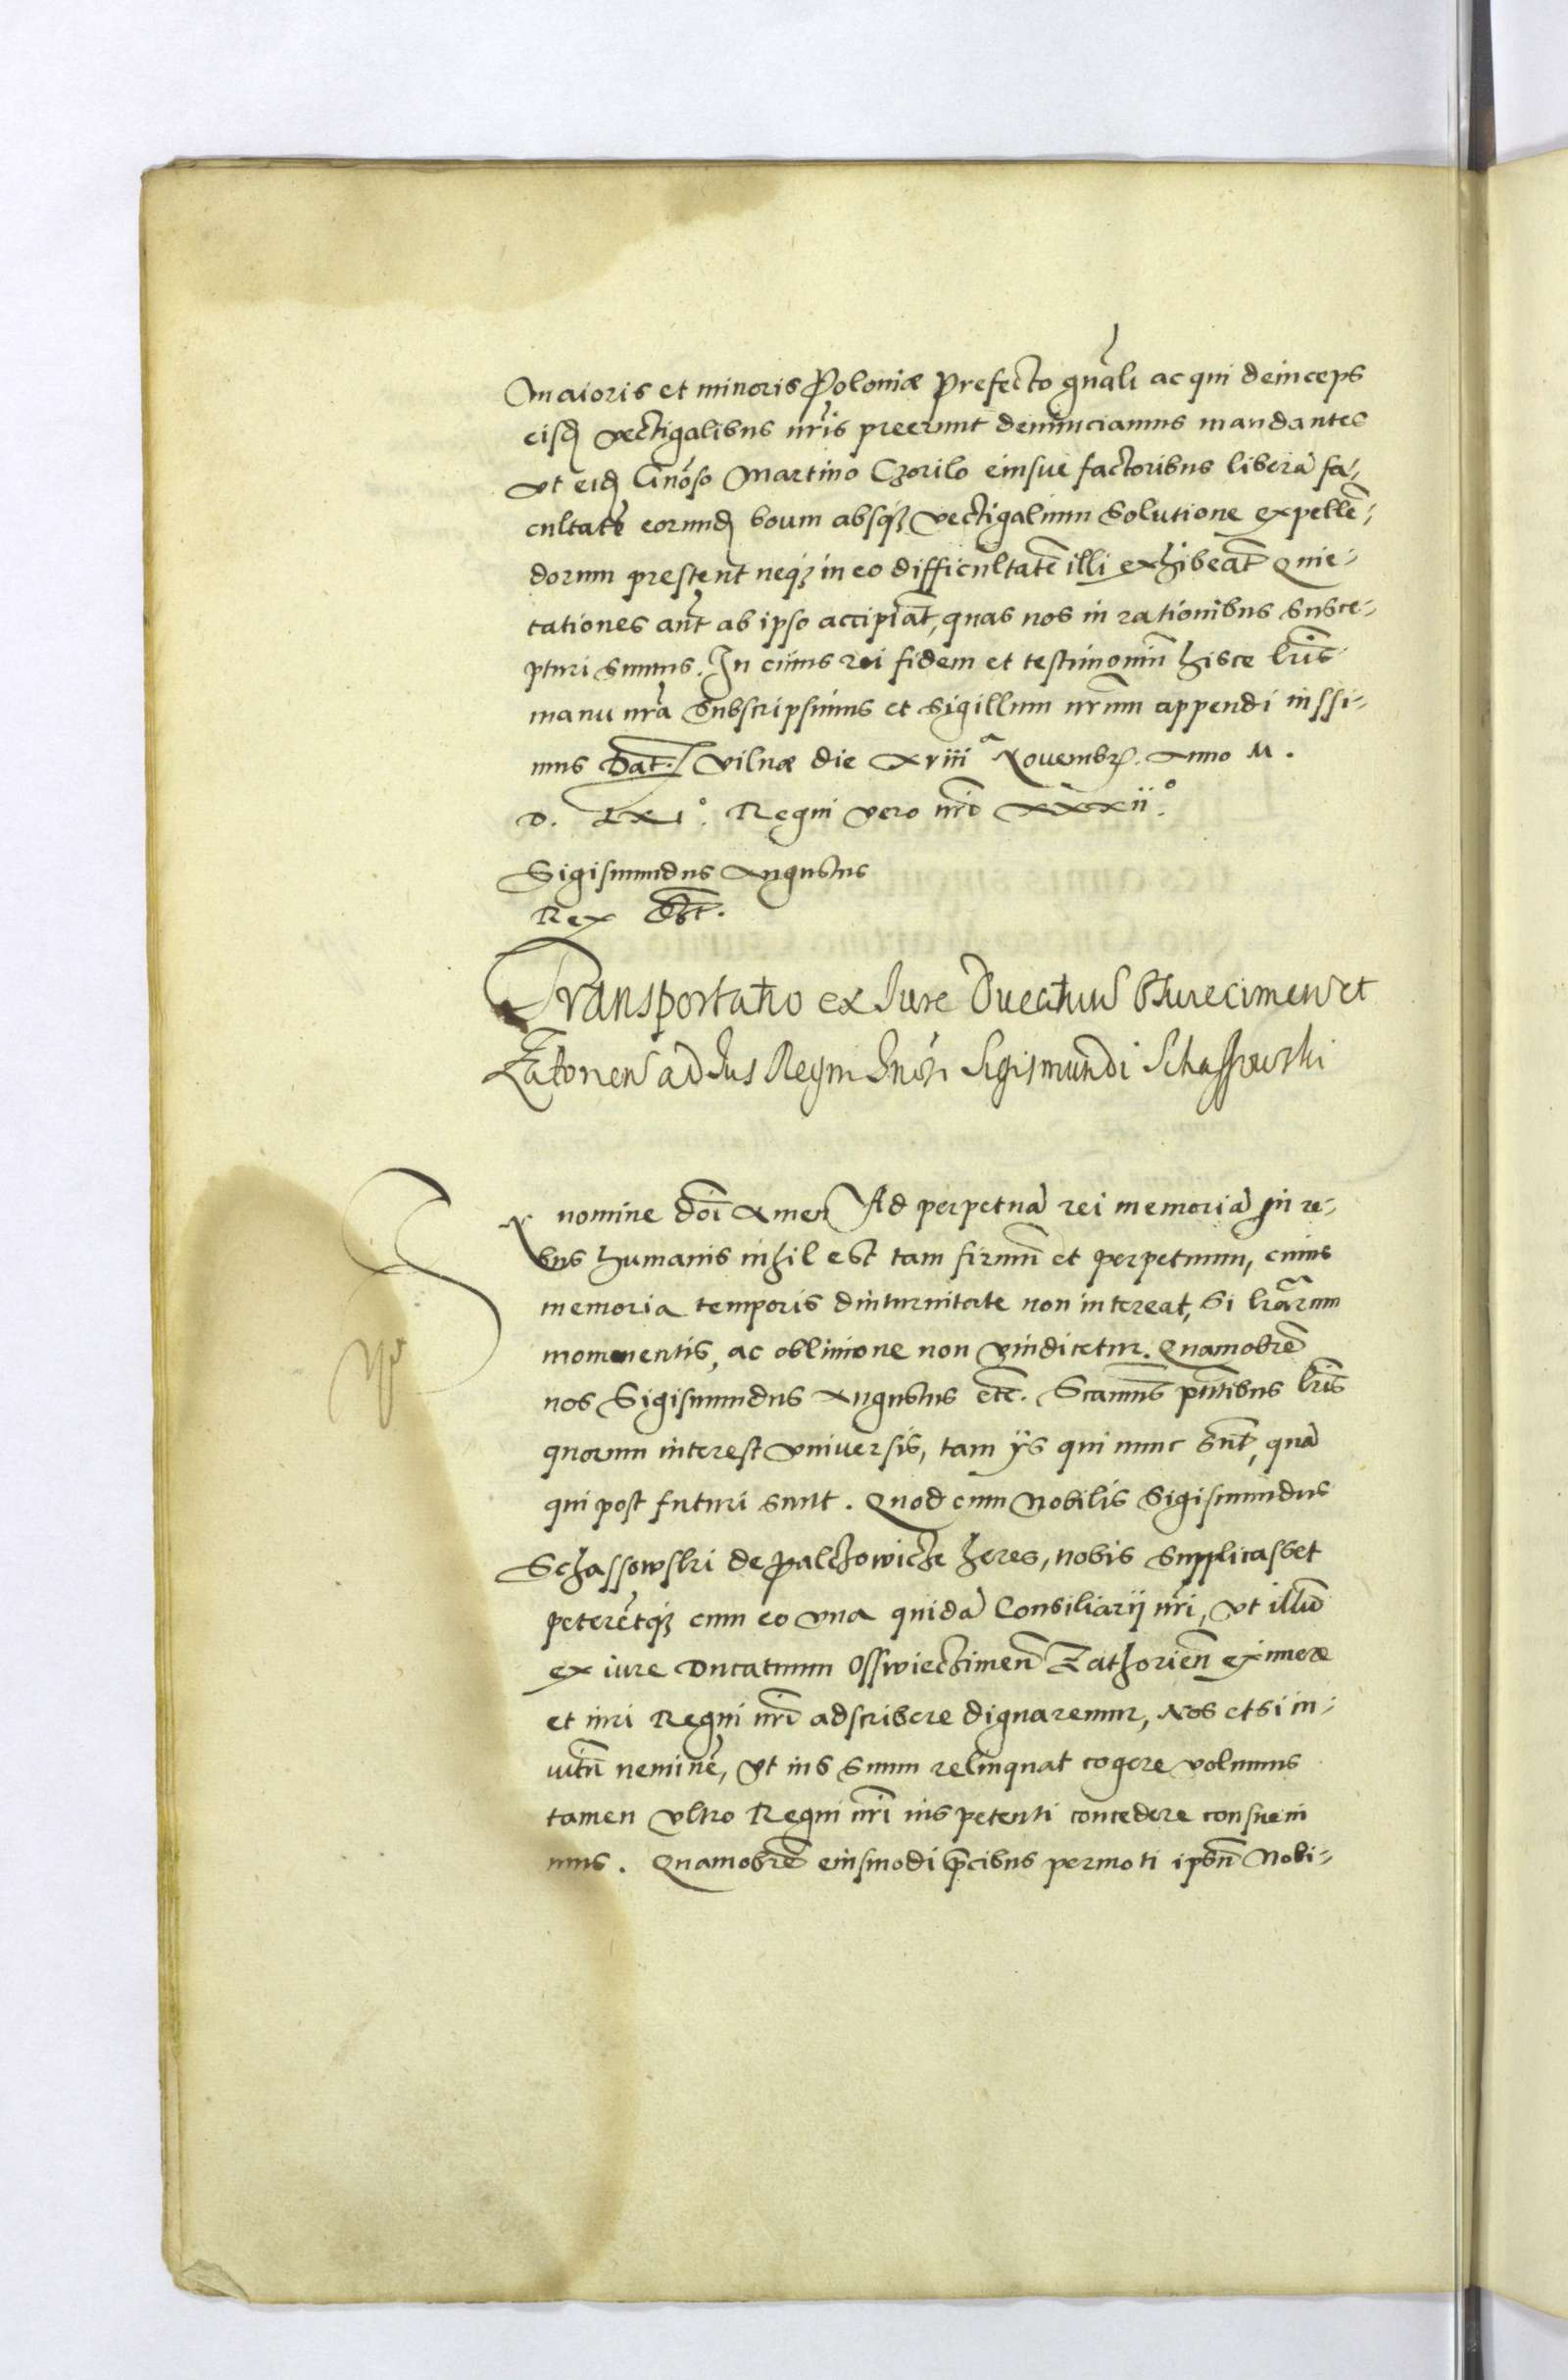 Maioris et minoris Poloniæ Prefecto gñali ac qui deinceps
eisđ vectigalibus nr̃is preerunt denunciamus mandantes
vt eiđ Gnõso Martino Czorilo eiusve factoribus liberã fa-
cultatẽ eorunđ boum absq3 vectigalium solutione expellẽ-
dorum prestent neq3 in eo difficultatẽ illi exhibeãt Quie-
tationes aũt ab ipso accipiãt, quas nos in rationibus susce-
pturi sumus. In cuius rei fidem et testimoniũ hisce lr̃is
manu nr̃a subscripsimus et sigillum nr̃um appendi iussi-
mus Dat. Vilnæ die xviii a Novembr. Anno M.
D. LXI°. Regni vero nr̃i xxxii°.
Sigismundus Augustus
Rex sst.
Transportatio ex Iure Ducatuu
Zatorien ad Ius Regni Gnõsi Sigismundi Schassowski
N nomine dñi Amen Ad perpetuã rei memoriã In re-
bus humanis nihil est tam firmũ et perpetuum, cuius
memoria temporis diuturnitate non intereat, si lr̃arum
momentis, ac obliuione non vindicetur. Quamobrẽ
nos Sigismundus Augustus etc. pñtibus lr̃is
quorum interest vniversis, tam ijs qui nunc sũt, quã
qui post futuri sunt. Quod cum Nobilis Sigismundus
Schassowski de Palchowicze heres, nobis supplicasset
peterẽtq3 cum eo vna quidã Consiliarij nr̃i, vt illũ
ex iure Ducatuum Osswieczimeñ Zathorieñ eximeræ
et iuri Regni nr̃i adscribere dignaremur, Nos etsi in-
uitũ neminẽ, vt ius suum relinquat cogere volumus
tamen vltro Regni nr̃i ius petenti concedere consueui
mus. Quamobrẽ eiusmodi p̃cibus permoti ipsũ Nobi-